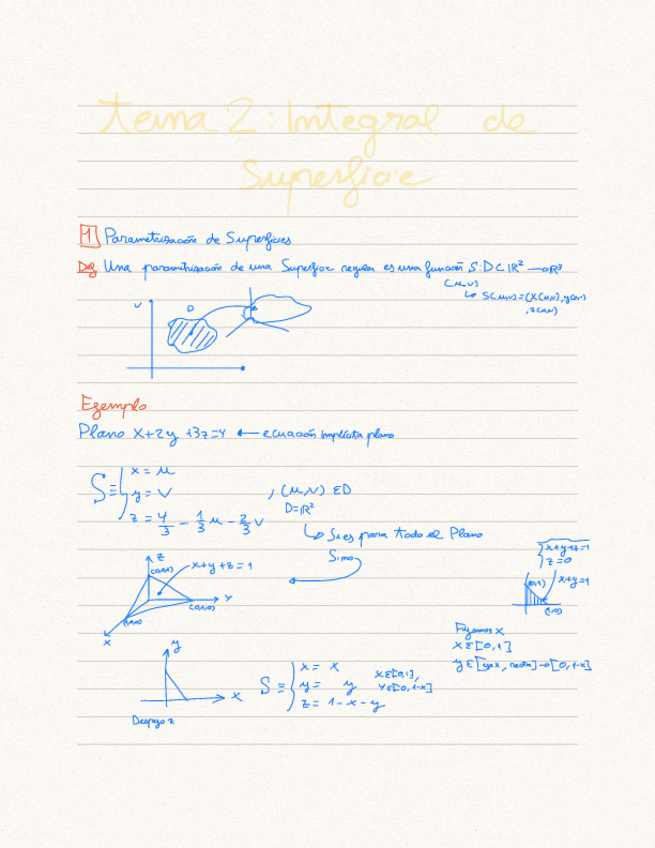 tema 2: Integral de
Superficie
1 Parametrización de Superficies
Def Una parametrización de una Superficie regular es una función S: D ⊂ ℝ² → ℝ³
(u,v)
↳ S(u,v) = (x(u,v), y(u,v)
, z(u,v))
v
D
Ejemplo
Plano x+2y+3z=4 ← ecuación implícita plano
S ≡ { x = u
y = v , (u,v) ∈ D
D=ℝ²
z = 4/3 - 1/3 u - 2/3 v
↳ Si es para todo el Plano
Si no
z
(0,0,1)
x+y+z=1
y
(0,1,0)
(1,0,0)
x
{ x+y+z=1
z=0
(0,1)
x+y=1
(1,0)
Fijamos x
x ∈ [0,1]
y ∈ [eje x, recta] → [0,1-x]
y
x
Despejo z
S ≡ { x = x
y = y
z = 1-x-y
x ∈ [0,1],
y ∈ [0,1-x]